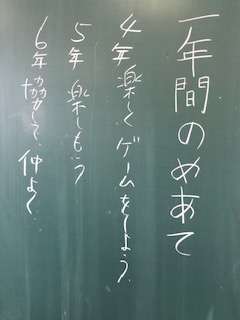 一年間のめあて
4年楽しくゲームをしよう
5年 楽しもう
6年協力して、仲よく